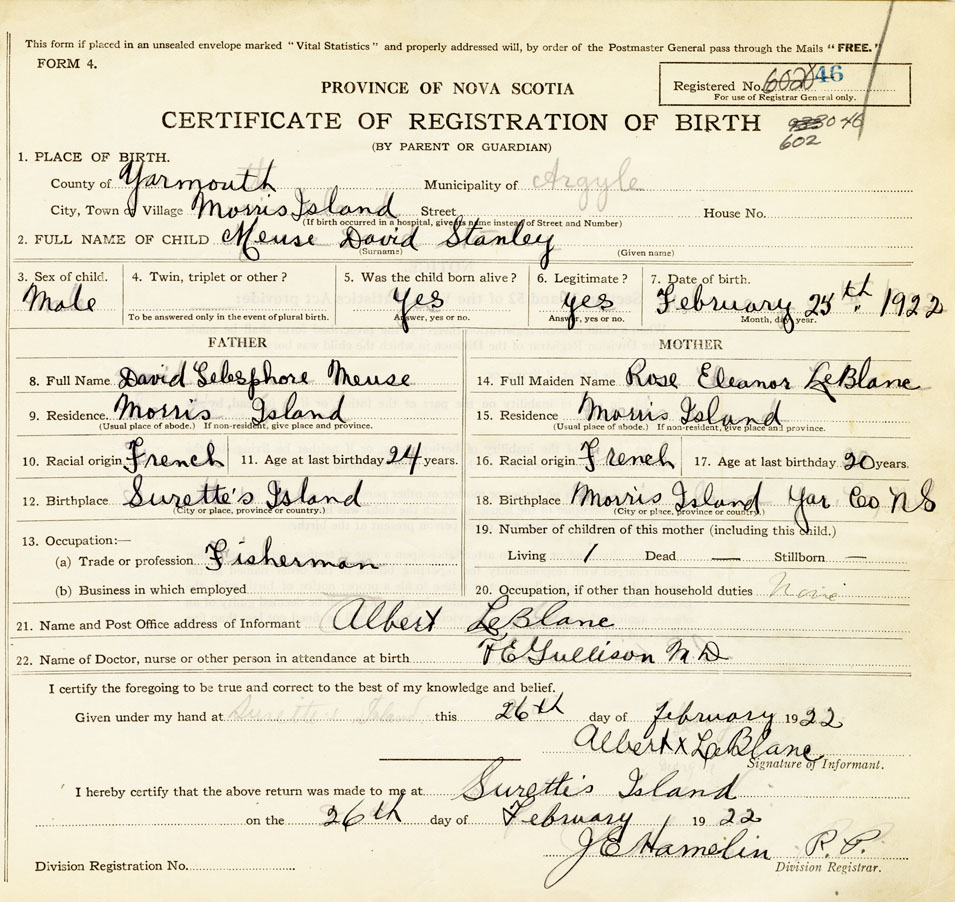 This form if placed in an unsealed envelope marked "Vital Statistics" and properly addressed will, by order of the Postmaster General pass through the Mails "FREE."
FORM 4.
PROVINCE OF NOVA SCOTIA
Registered No. 46
For use of Registrar General only.
CERTIFICATE OF REGISTRATION OF BIRTH
602
(BY PARENT OR GUARDIAN)
1. PLACE OF BIRTH.
County of Yarmouth Municipality of Argyle
City, Town or Village Morris Island Street House No.
(If birth occurred in a hospital, give its name instead of Street and Number)
2. FULL NAME OF CHILD Meuse David Stanley
(Surname) (Given name)
3. Sex of child. 4. Twin, triplet or other? 5. Was the child born alive? 6. Legitimate? 7. Date of birth.
Male Yes yes February 25th. 1922
To be answered only in the event of plural birth. Answer, yes or no. Answer, yes or no. Month, day, year.
FATHER MOTHER
8. Full Name David Gelesphore Meuse 14. Full Maiden Name Rose Eleanor LeBlanc
9. Residence. Morris Island 15. Residence Morris Island
(Usual place of abode.) If non-resident, give place and province. (Usual place of abode.) If non-resident, give place and province.
10. Racial origin French 11. Age at last birthday 24 years. 16. Racial origin French 17. Age at last birthday 20 years.
12. Birthplace Surette's Island 18. Birthplace Morris Island Yar Co N S
(City or place, province or country.) (City or place, province or country.)
19. Number of children of this mother (including this child.)
13. Occupation:—
(a) Trade or profession Fisherman Living 1 Dead — Stillborn —
(b) Business in which employed 20. Occupation, if other than household duties None
21. Name and Post Office address of Informant Albert LeBlanc
22. Name of Doctor, nurse or other person in attendance at birth F E Gullison M D
I certify the foregoing to be true and correct to the best of my knowledge and belief.
Given under my hand at Surette's Island this 26th day of february 1922
Albert x LeBlanc
Signature of Informant.
I hereby certify that the above return was made to me at Surette's Island
on the 26th day of February 1922
J E Hamelin R. P.
Division Registration No. Division Registrar.